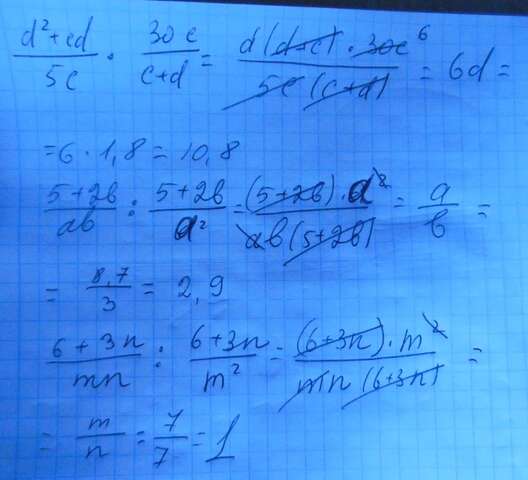 (d²+cd)/5c · 30c/(c+d) = d(d+c)·30c 6/5c(c+d) = 6d =
= 6 · 1,8 = 10,8
(5+2b)/ab : (5+2b)/a² = (5+2b)·a²/ab(5+2b) = a/b =
= 8,7/3 = 2,9
(6+3n)/mn : (6+3n)/m² = (6+3n)·m²/mn(6+3n) =
= m/n = 7/7 = 1